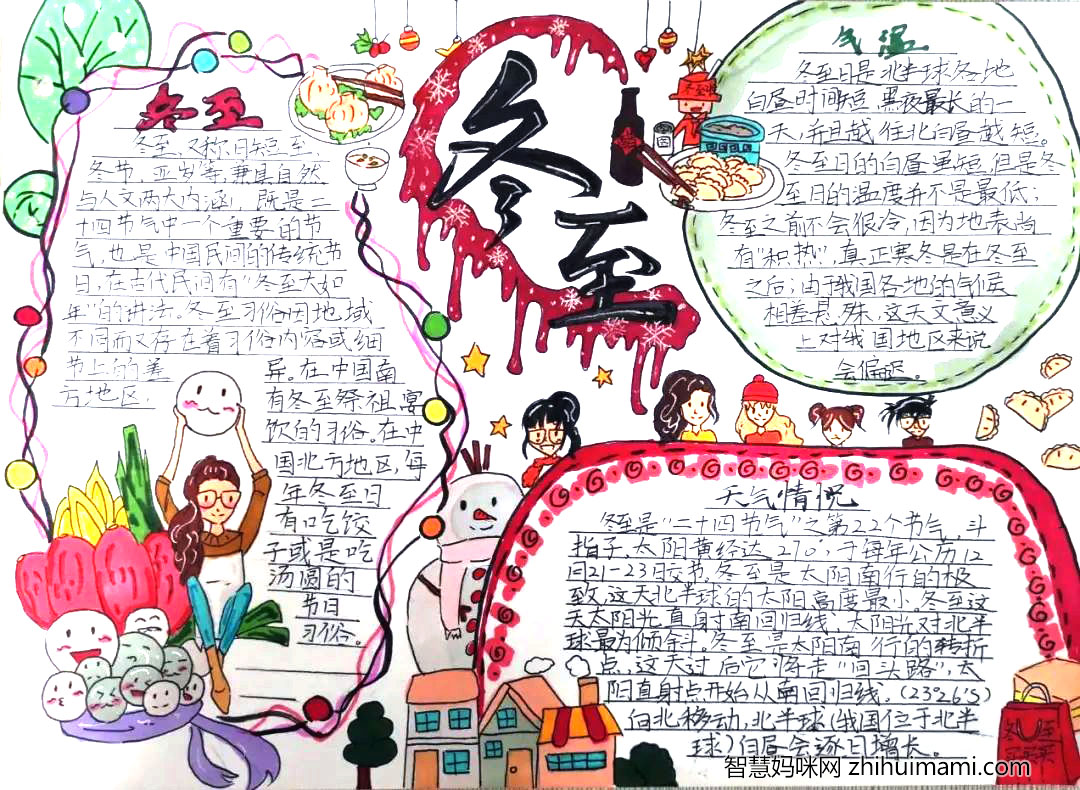 冬至
冬至
冬至，又称日短至、
冬节、亚岁等，兼具自然
与人文两大内涵，既是二
十四节气中一个重要的节
气，也是中国民间的传统节
日，在古代民间有“冬至大如
年”的讲法。冬至习俗因地域
不同而又存在着习俗内容或细
节上的差
异。在中国南
方地区，
有冬至祭祖、宴
饮的习俗。在中
国北方地区，每
年冬至日
有吃饺
子或是吃
汤圆的
节日
习俗。
气温
冬至日是北半球各地
白昼时间短、黑夜最长的一
天，并且越往北白昼越短。
冬至日的白昼虽短，但是冬
至日的温度并不是最低；
冬至之前不会很冷，因为地表尚
有“积热”，真正寒冬是在冬至
之后；由于我国各地的气候
相差悬殊，这天文意义
上对我国地区来说
会偏迟。
天气情况
冬至是“二十四节气”之第22个节气，斗
指子，太阳黄经达270°，于每年公历12
月21-23日交节。冬至是太阳南行的极
致，这天北半球的太阳高度最小。冬至这
天太阳光直射南回归线，太阳光对北半
球最为倾斜。冬至是太阳南行的转折
点，这天过后它将走“回头路”，太
阳直射点开始从南回归线。(23°26′S)
向北移动，北半球(我国位于北半
球)白昼会逐日增长。
智慧妈咪网 zhihuimami.com